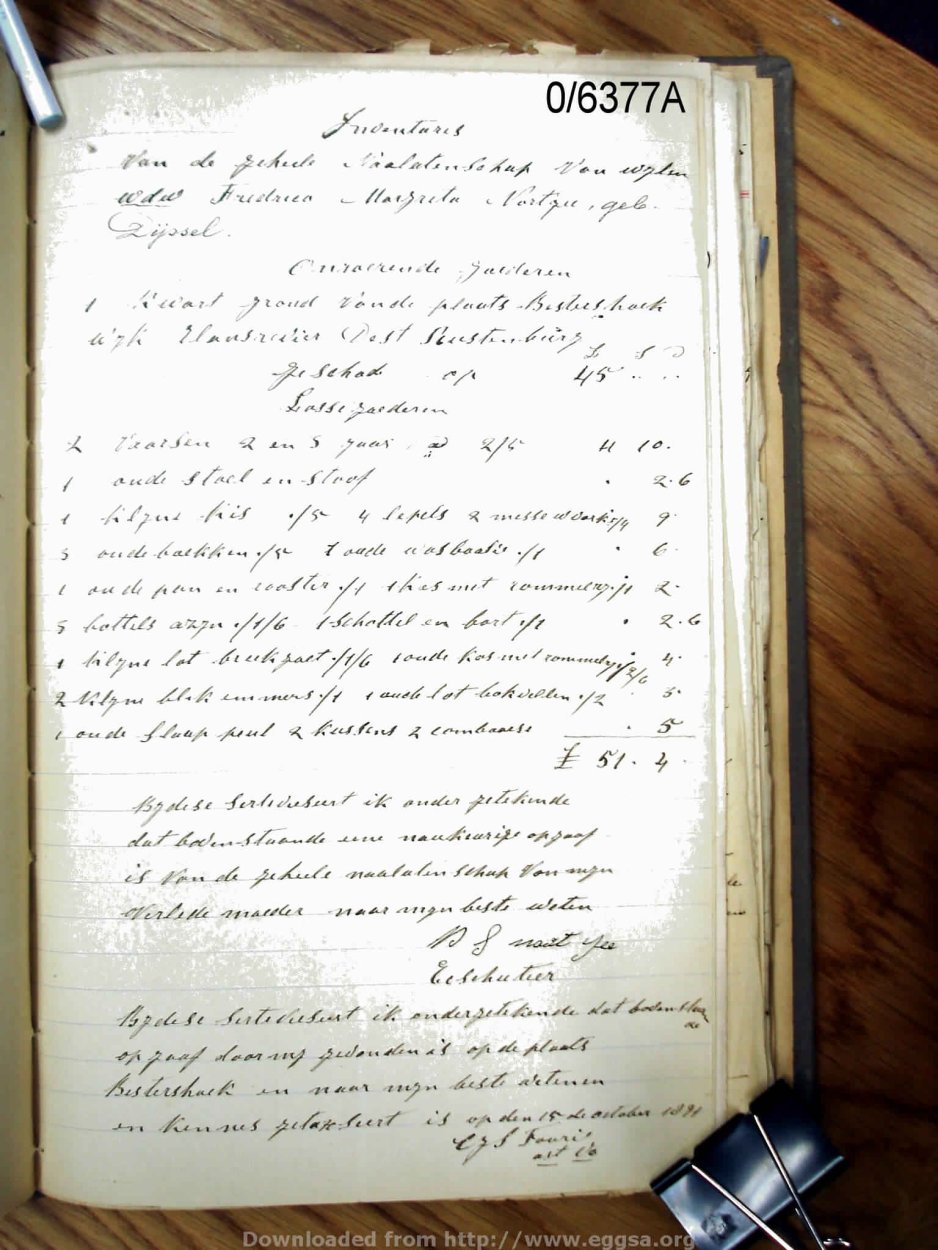 0/6377A
Inventaris
Van de geheele Naalatenschap Van wylen
wdw Fredrica Margreta Nortjee, geb.
Dijssel.
Onroerende goederen
1 Kwart grond Van de plaats Bestershoek
wyk Elansrivier Dest Rustenburg
£ S D
geschad op 45 .. ..
Losse goederen
2 Vaarsen 2 en 3 jaar a 2/5 4 10.
1 oude stoel en stoof . 2.6
1 kist ./5 4 lepels 2 messe 9
3 oude ./5 1 oude ./1 . 6.
1 oude pan en rooster ./1 1 kes met rommelry ./1 2.
5 bottels azyn ./1/6 1 Schottel en bort ./1 . 2.6
1 lot ./1/6 1 oude kas met rommelry 4.
2 blik emmers ./1 1 oude lot bokvellen ./2 3
1 oude slaap peul 2 kussens 2 combaarse . 5
£ 51. 4.
Bydese Sertivieseert ik onder getekende
dat bovenstaande eene naukeurige opgaaf
is Van de geheele naalatenschap Van myn
Verlede moeder naar myn beste weten
nort jee
Bydese Sertivieseert ik ondergetekende dat bovenstaan
de
opgaaf door my gevonden is op de plaats
Bestershoek en naar myn beste wetenen
en kennes getaxseert is op den 15 de october 1891
C J S Fourie
Downloaded from http://www.eggsa.org